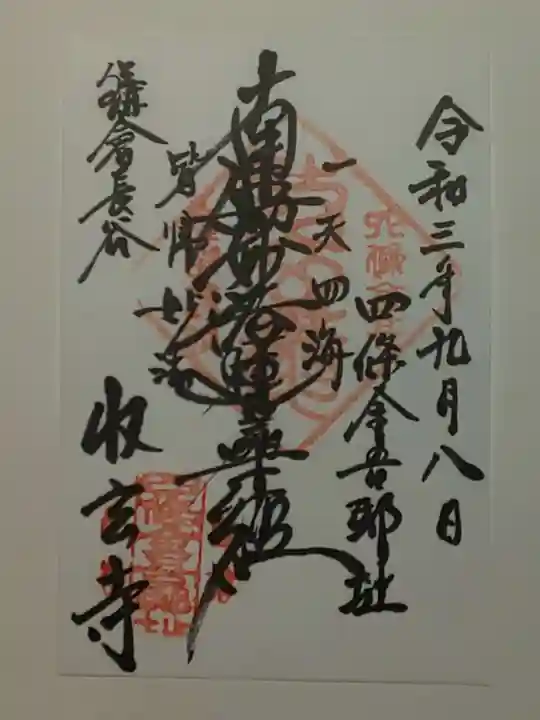 令和三年九月八日
四條金吾邸址
一天四海
南無妙法蓮華経
皆帰妙法
鎌倉長谷
収玄寺